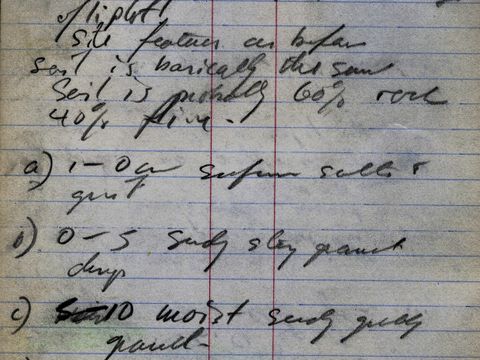 of light
site features as before
soil is basically the same
Soil is probably 60% rock
40% fine.
a) 1-0 cm surface salts &
b) 0-5 sandy gravel
damp
c) 10 moist sandy
gravel.